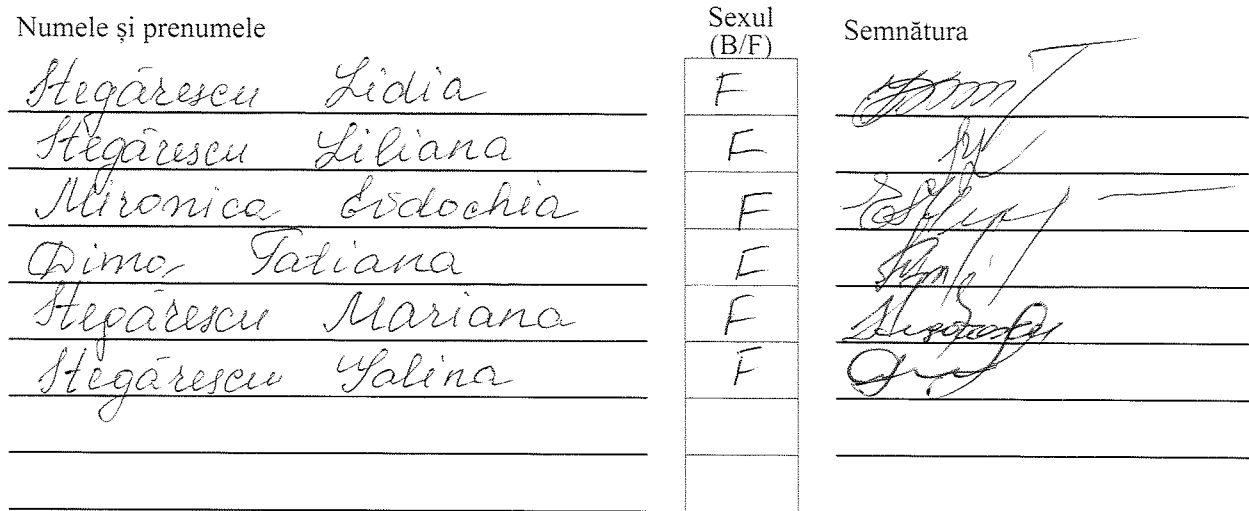 Numele și prenumele Sexul (B/F) Semnătura
Stegărescu Lidia F
Stegărescu Liliana F
Mironica Evdochia F
Dimo Tatiana F
Stegărescu Mariana F
Stegărescu Galina F